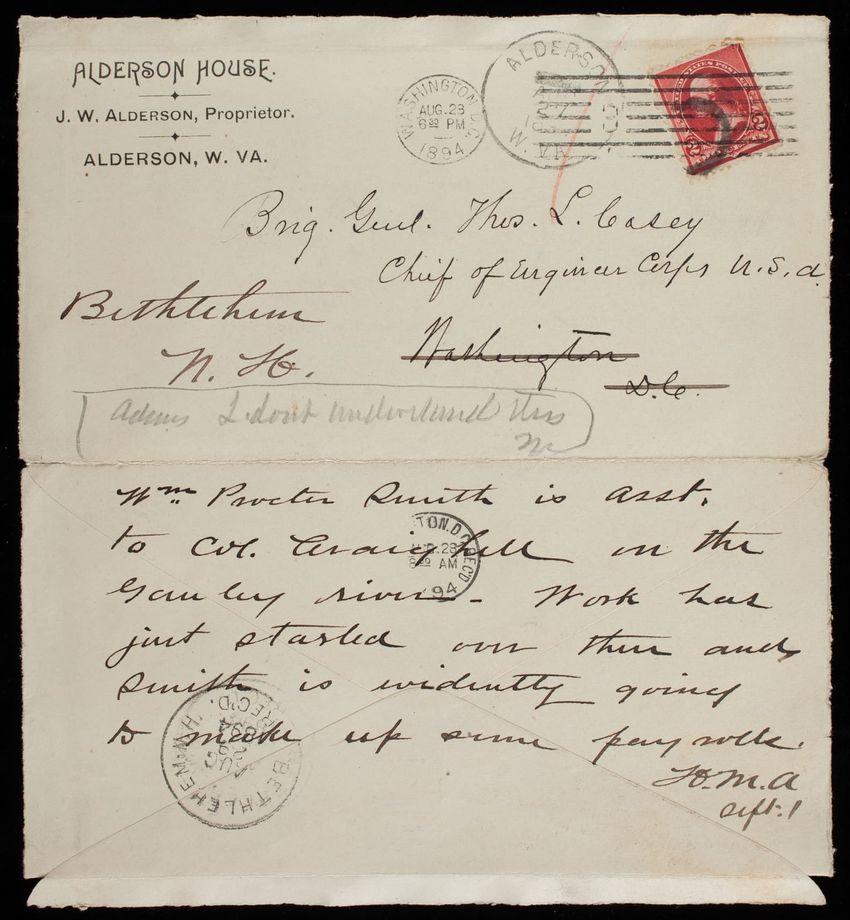 ALDERSON HOUSE.
J. W. ALDERSON, Proprietor.
ALDERSON, W. VA.
WASHINGTON, D.C.
AUG. 28
6 30 PM
1894
ALDERSON
W. VA.
UNITED STATES POSTAGE
2 2
Brig. Genl. Thos. L. Casey
Chief of Engineer Corps U.S.A.
Washington
D.C.
Bethlehem
N. H.
Adams I dont understand this
Wm. Procter Smith is asst.
to Col. Craighill on the
Gauley river - Work has
just started over there and
Smith is evidently going
to make up some pay rolls.
H.M.A
Sept. 1
TON. D.C. REC'D
AUG. 28
AM
94
BETHLEHEM N.H.
AUG
29
1894
REC'D.